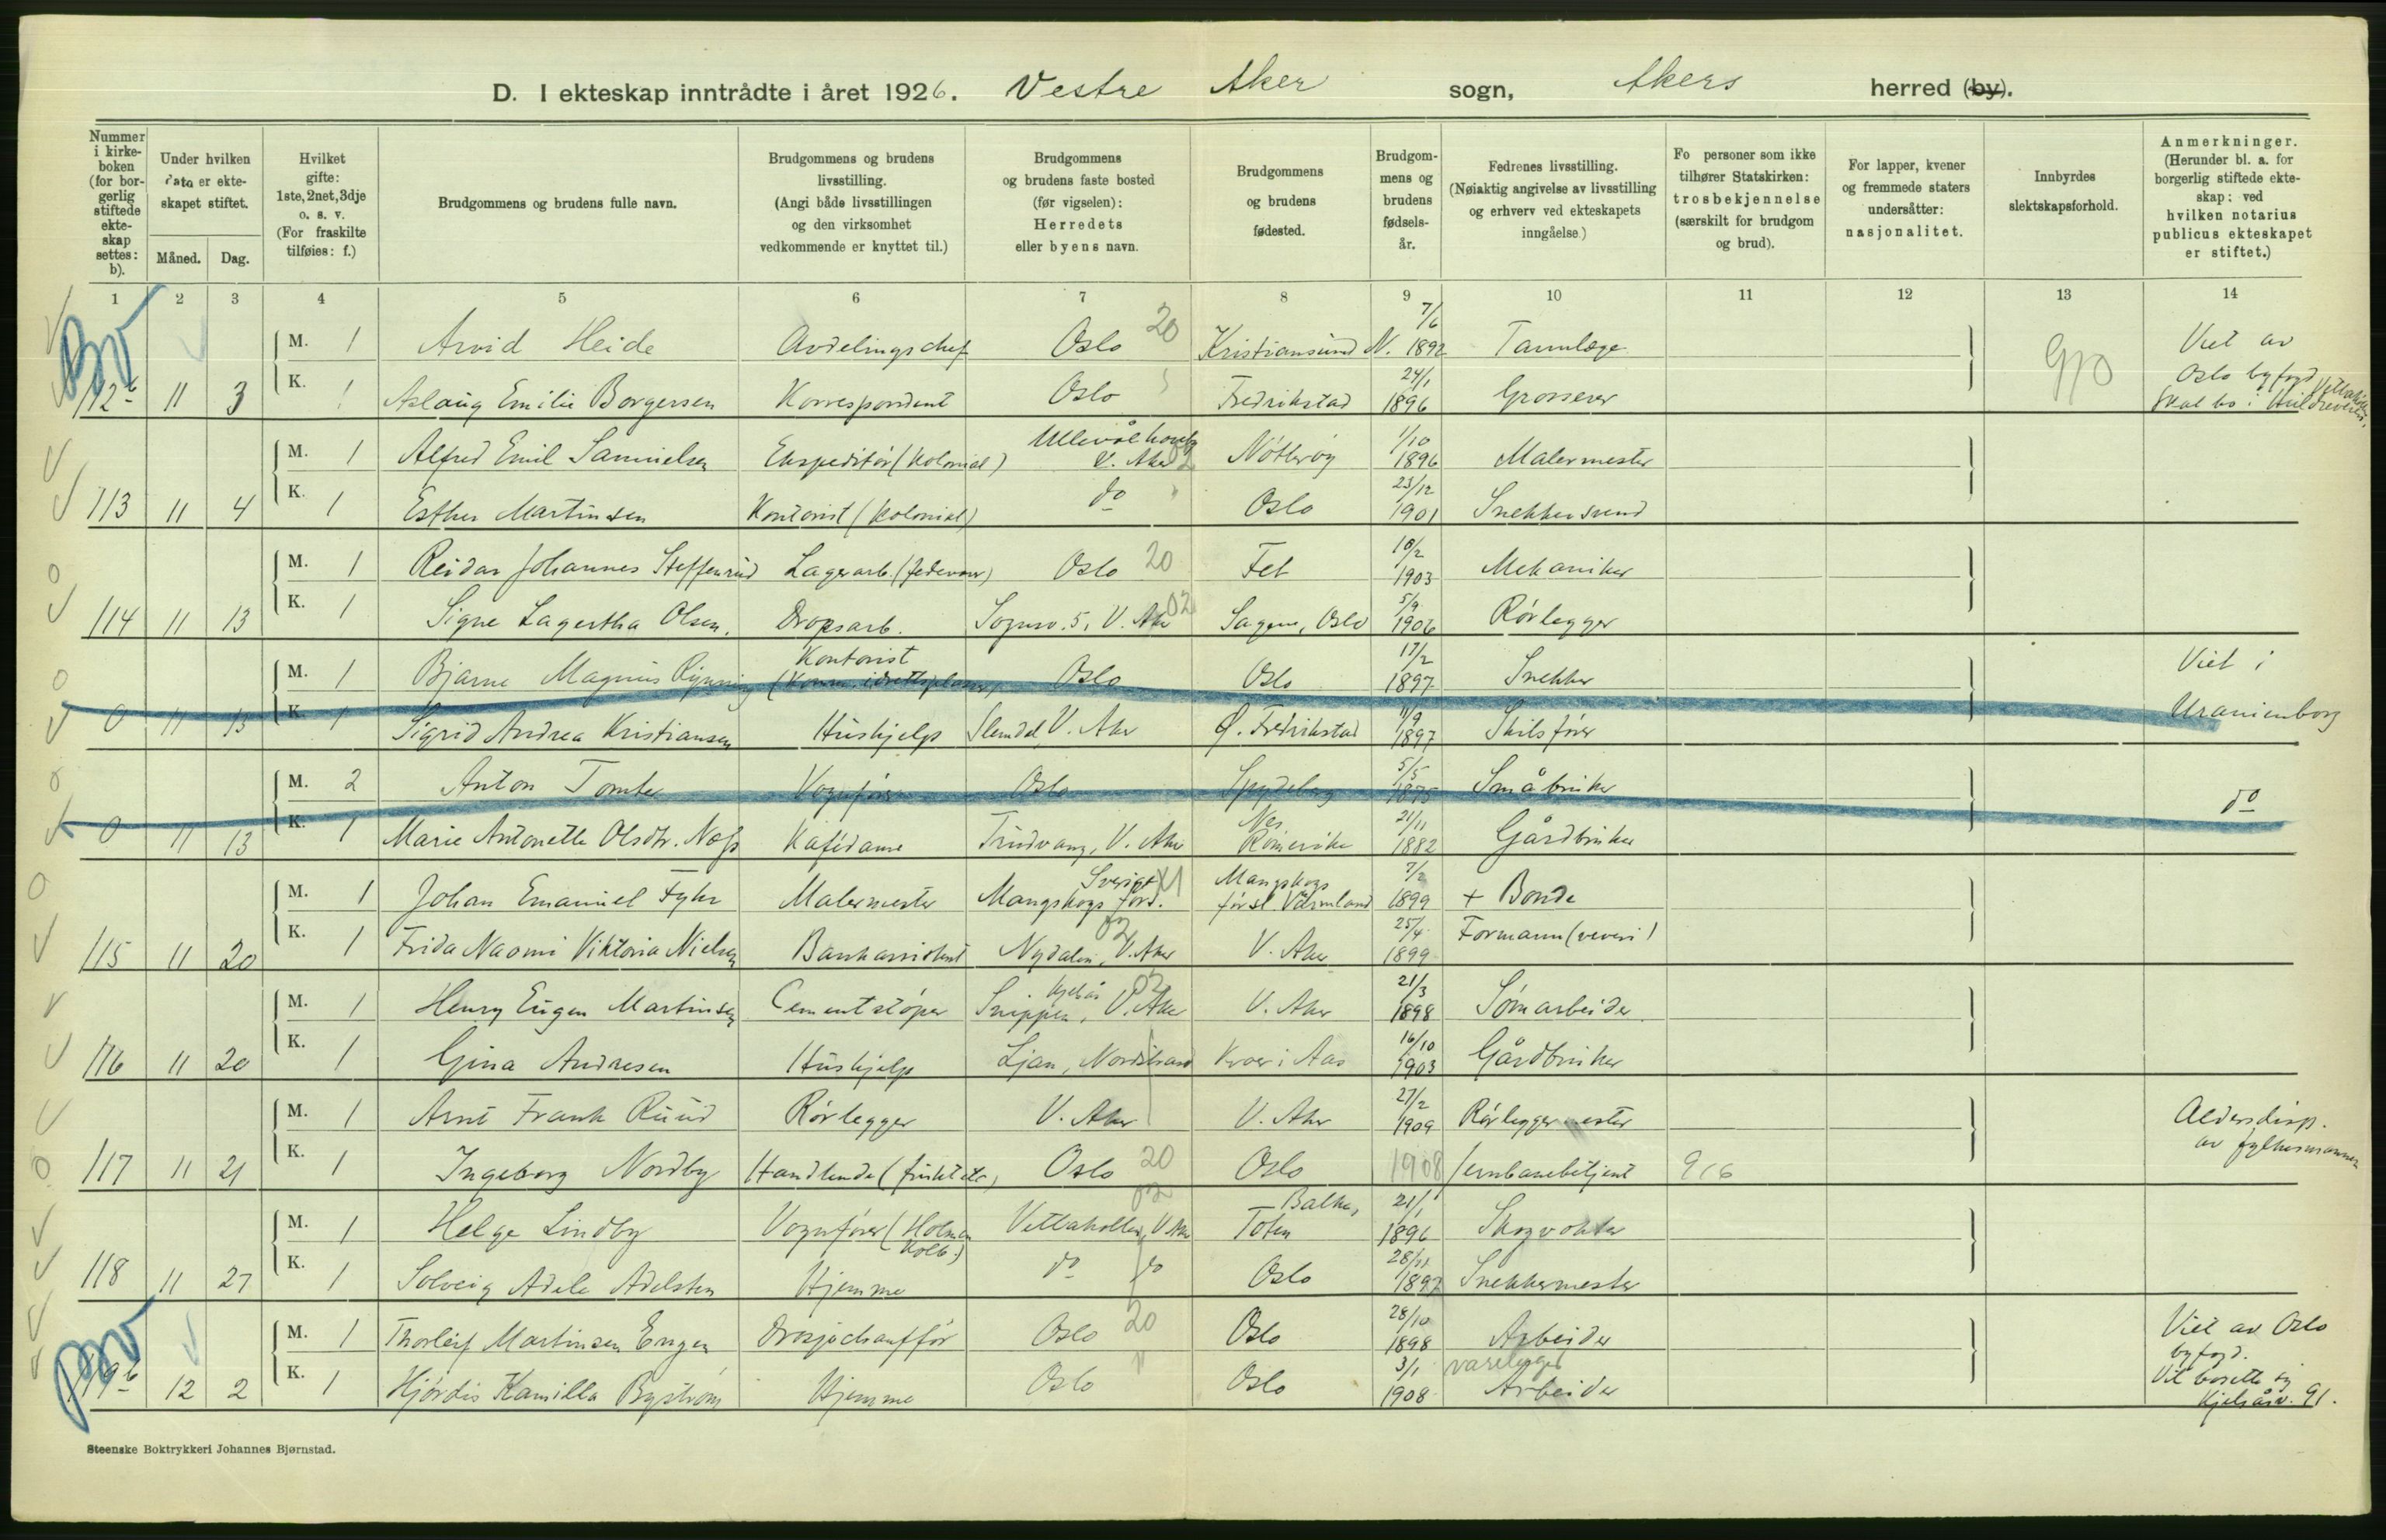 D. I ekteskap inntrådte i året 1926. Vestre Aker sogn, Akers herred (by).
Nummer i kirkeboken (for borgerlig stiftede ekteskap settes: b).
Under hvilken dato er ekteskapet stiftet.
Måned. Dag.
Hvilket gifte: 1ste, 2net, 3dje o. s. v. (For fraskilte tilføies: f.)
Brudgommens og brudens fulle navn.
Brudgommens og brudens livsstilling. (Angi både livsstillingen og den virksomhet vedkommende er knyttet til.)
Brudgommens og brudens faste bosted (før vigselen): Herredets eller byens navn.
Brudgommens og brudens fødested.
Brudgommens og brudens fødselsår.
Fedrenes livsstilling. (Nøiaktig angivelse av livsstilling og erhverv ved ekteskapets inngåelse.)
Fo personer som ikke tilhører Statskirken: trosbekjennelse (særskilt for brudgom og brud).
For lapper, kvener og fremmede staters undersåtter: nasjonalitet.
Innbyrdes slektskapsforhold.
Anmerkninger. (Herunder bl. a. for borgerlig stiftede ekteskap: ved hvilken notarius publicus ekteskapet er stiftet.)
1 2 3 4 5 6 7 8 9 10 11 12 13 14
M. 1 Arvid Heide Avdelingschef Oslo 20 Kristiansund N. 7/6 1892 Tannlæge Viet av
112b 11 3 K. 1 Aslaug Emilie Borgersen Korrespondent Oslo Fredrikstad 24/1 1896 Grosserer Oslo byfogd Skal bo i
M. 1 Alfred Emil Samuelsen Ekspeditør (kolonial) Ullevål haveby V. Aker 02 Nøtterøy 1/10 1896 Malermester
113 11 4 K. 1 Esther Martinsen Kontorist (kolonial) do Oslo 23/12 1901 Snekkersvend
M. 1 Reidar Johannes Steffenrud Lagerarb. (fedevarer) Oslo 20 Fet 10/2 1903 Mekaniker
114 11 13 K. 1 Signe Lagertha Olsen. Dropsarb. Sognsv. 5, V. Aker 02 Sagene, Oslo 5/9 1906 Rørlegger
M. 1 Bjarne Magnus Kontorist (Komm. idrettsplasser) Oslo Oslo 17/2 1897 Snekker Viet i
0 11 13 K. 1 Sigrid Andrea Kristiansen Hushjelp Slemdal, V. Aker Ø. Fredrikstad 11/9 1897 Skibsfører Uranienborg
M. 2 Anton Tomter Vognfører Oslo Spydeberg 5/5 1875 Småbruker do
0 11 13 K. 1 Marie Antonette Olsdtr. Næss Kafédame Trudvang, V. Aker Nes Romerike 21/11 1882 Gårdbruker
M. 1 Johan Emanuel Fyhr Malermester Mangskogs förs. Sverige Mangskogs förs. Värmland 7/2 1899 + Bonde
115 11 20 K. 1 Frida Naomi Viktoria Nielsen Bankassistent Nydalen, V. Aker 02 V. Aker 25/4 1899 Formann (veveri)
M. 1 Henry Eugen Martinsen Cementstøper Snippen, Kjelsås V. Aker 02 V. Aker 21/3 1898 Tømarbeider
116 11 20 K. 1 Gina Andresen Hushjelp Ljan, Nordstrand Kroer i Aas 16/10 1903 Gårdbruker
M. 1 Arne Frank Ruud Rørlegger V. Aker V. Aker 27/2 1909 Rørleggermester Aldersdisp.
117 11 21 K. 1 Ingeborg Nordby Handlende (frukt etc) Oslo 20 Oslo 1908 Jernbanebetjent 916 av fylkesmannen
M. 1 Helge Lindby Vognfører (Holmenkolb.) Vettakollen, V. Aker 02 Balke, Toten 21/1 1896 Skogvokter
118 11 27 K. 1 Solveig Adele Adelsten Hjemme do do Oslo 28/11 1897 Snekkermester
M. 1 Thorleif Martinsen Engen Drosjechauffør Oslo 20 Oslo 28/10 1898 Arbeider Viet av Oslo byfogd.
119b 12 2 K. 1 Hjørdis Kamilla Byström Hjemme Oslo Oslo 3/1 1908 varelegger Arbeider Vil bosette sig Kjelsåsv. 91.
Steenske Boktrykkeri Johannes Bjørnstad.